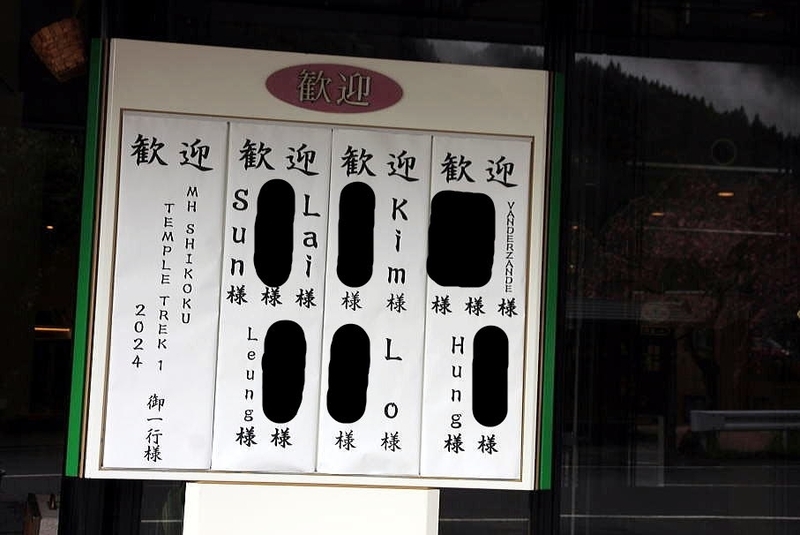 歓迎
歓迎
MH SHIKOKU
TEMPLE TREK 1
2024
御一行様
歓迎
Sun
Lai
様 様 様
Leung
様 様
歓迎
Kim
様 様
Lo
様 様
歓迎
VANDERZANDE
様 様 様
Hung
様 様